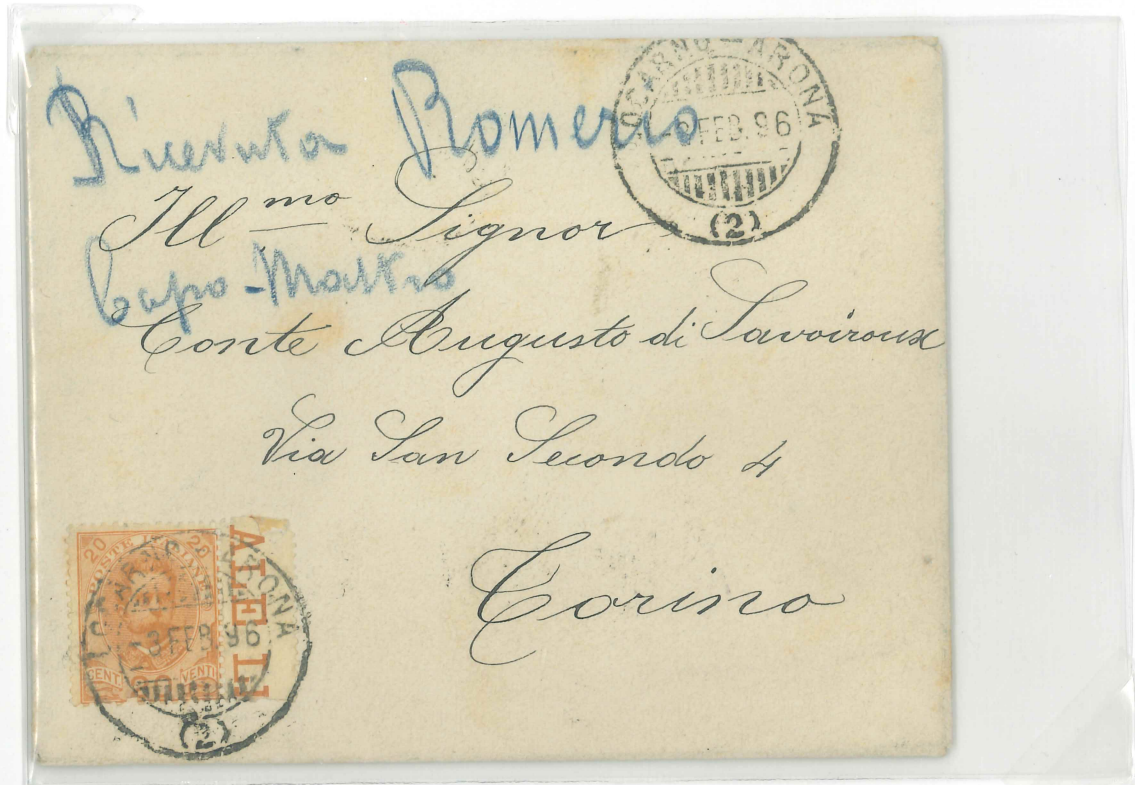 Ricevuta Romerio
LOCARNO-ARONA
3 FEB. 96
(2)
Ill mo Signor
Capo-Mastro
Conte Augusto di Savoiroux
Via San Secondo 4
Torino
20 20
POSTE
CENT. VENTI
ALE IN
LOCARNO ARONA
3 FEB. 96
(2)